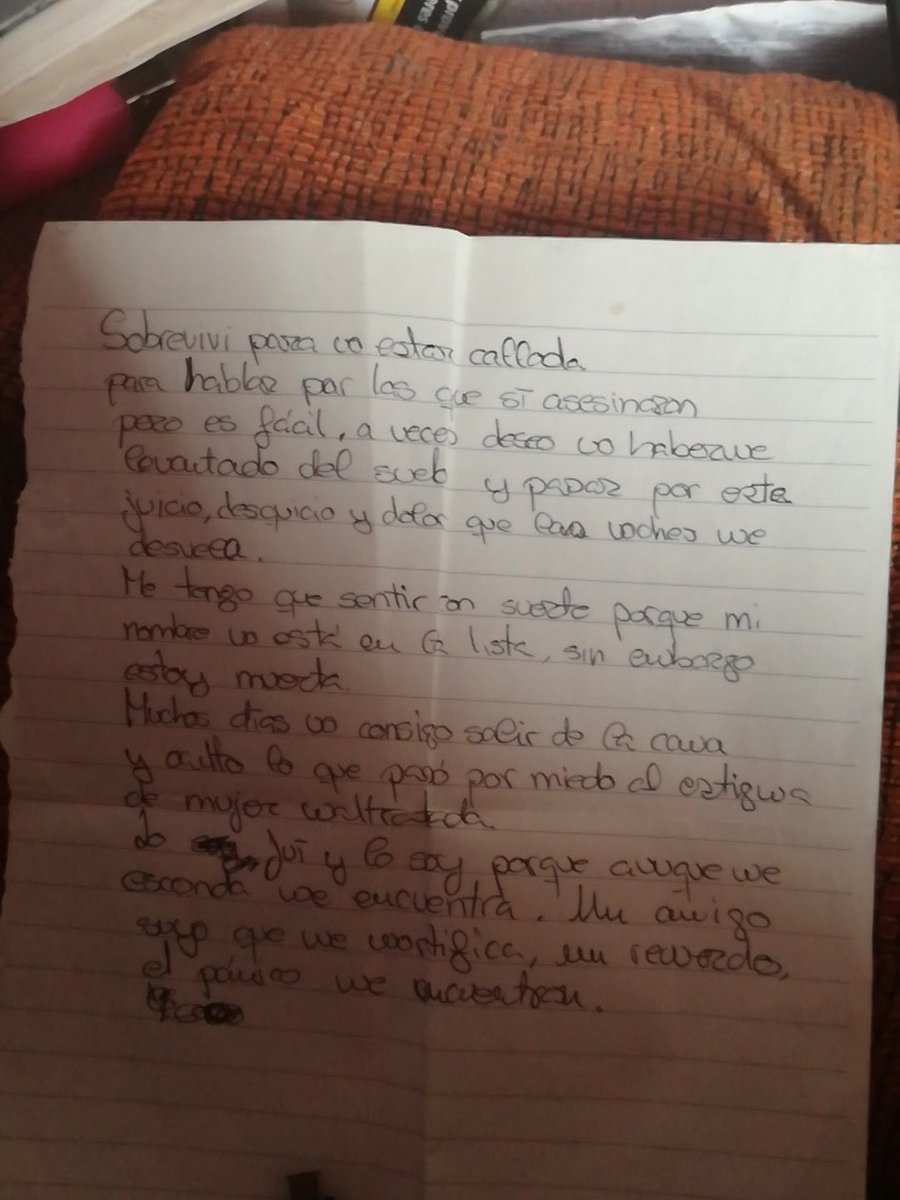 Sobreviví para no estar callada
para hablar por las que sí asesinaron
pero es fácil, a veces deseo no haberme
levantado del suelo y pasar por este
juicio, desquicio y dolor que las noches me
desvela.
Me tengo que sentir con suerte porque mi
nombre no está en la lista, sin embargo
estoy muerta.
Muchos días no consigo salir de la cama
y oculto lo que pasó por miedo al estigma
de mujer maltratada.
Lo fuí y lo soy porque aunque me
esconda me encuentra. Un amigo
suyo que me mortifica, un recuerdo,
el pánico me encuentran.